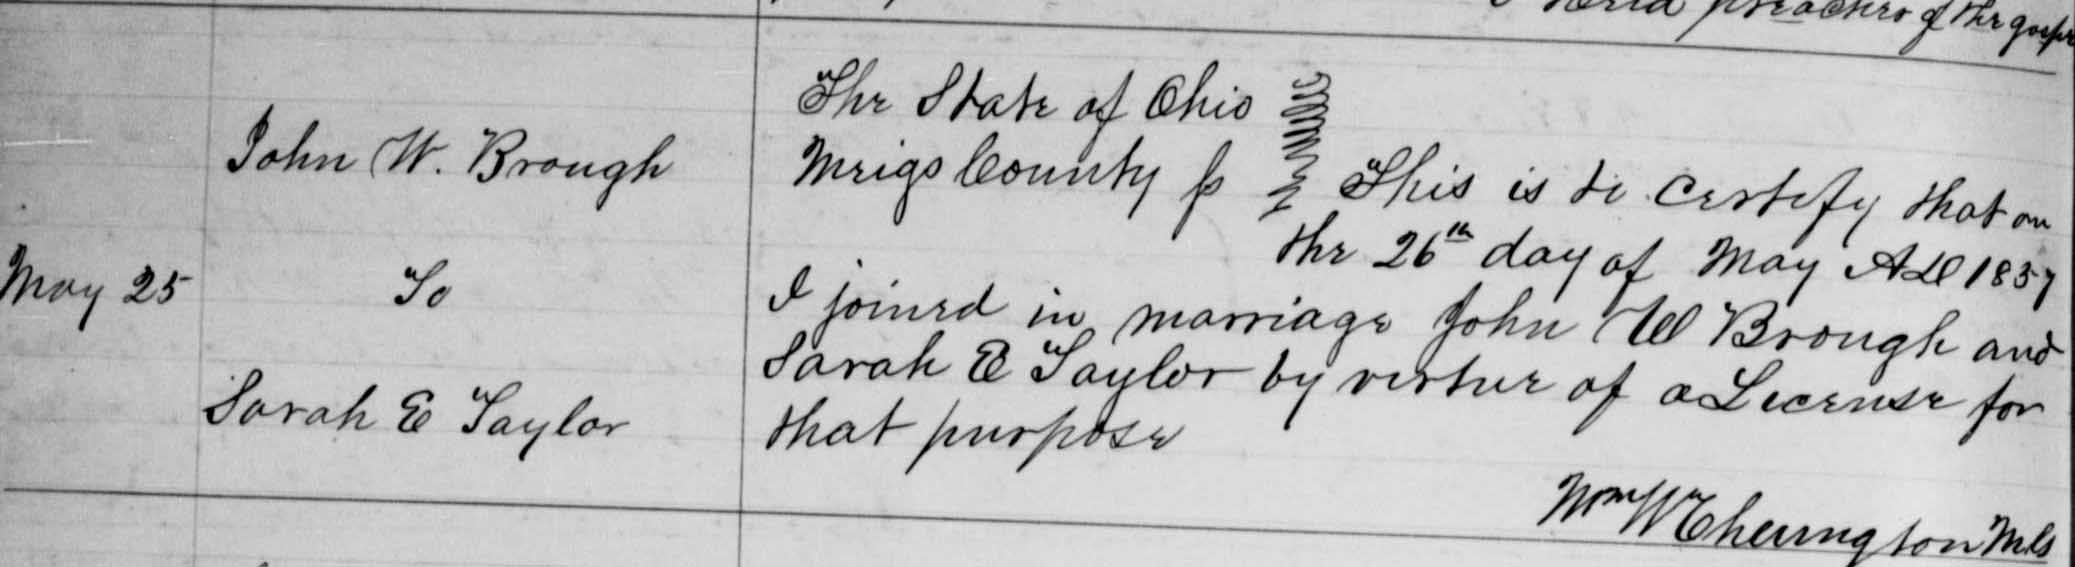 preachers of the gospel
John W. Brough
May 25
To
Sarah E Taylor
The State of Ohio
Meigs County ss
This is to certify that on
the 26th day of May AD 1857
I joined in marriage John W Brough and
Sarah E Taylor by virtue of a License for
that purpose
Wm W Cherrington